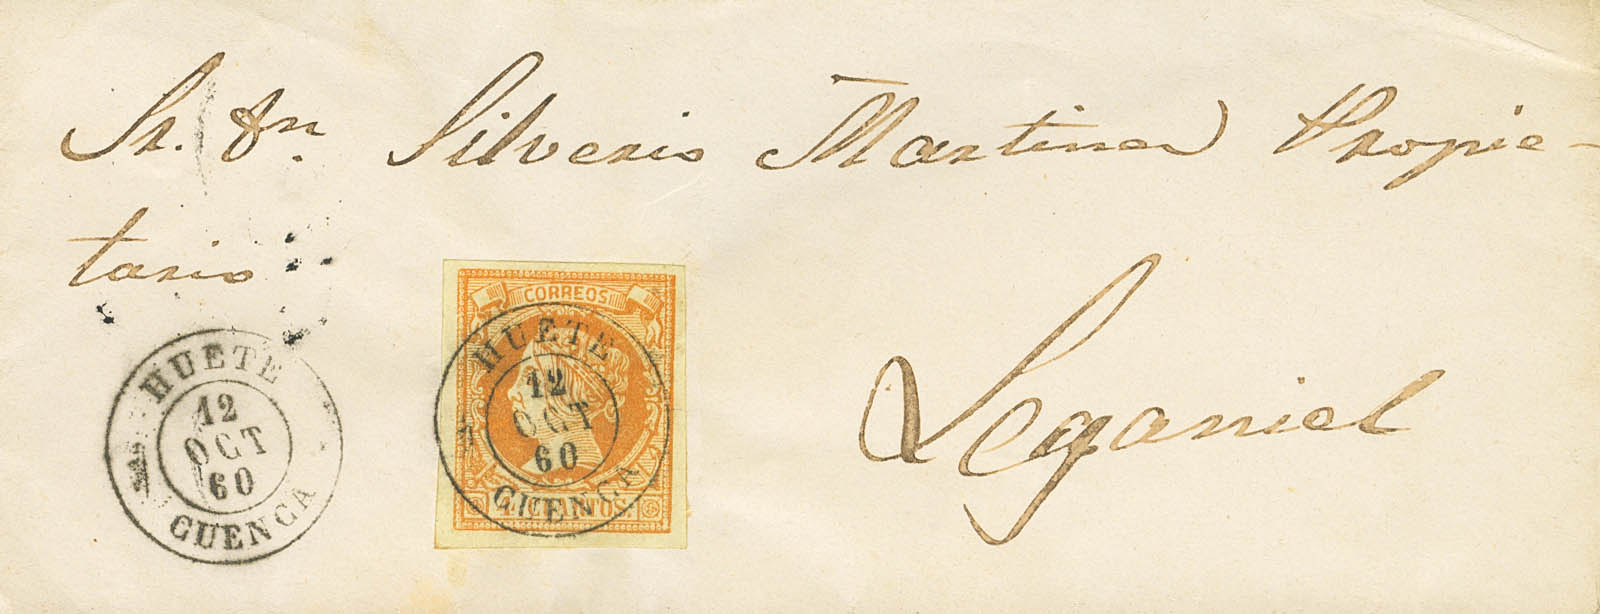 Sr. Dn. Silverio Martinez Propie-
tario
Leganiel
HUETE
12
OCT
60
CUENCA
CORREOS
HUETE
12
OCT
60
CUENCA
4 CUARTOS